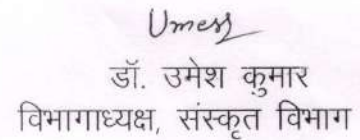 Umesh
डॉ. उमेश कुमार
विभागाध्यक्ष, संस्कृत विभाग